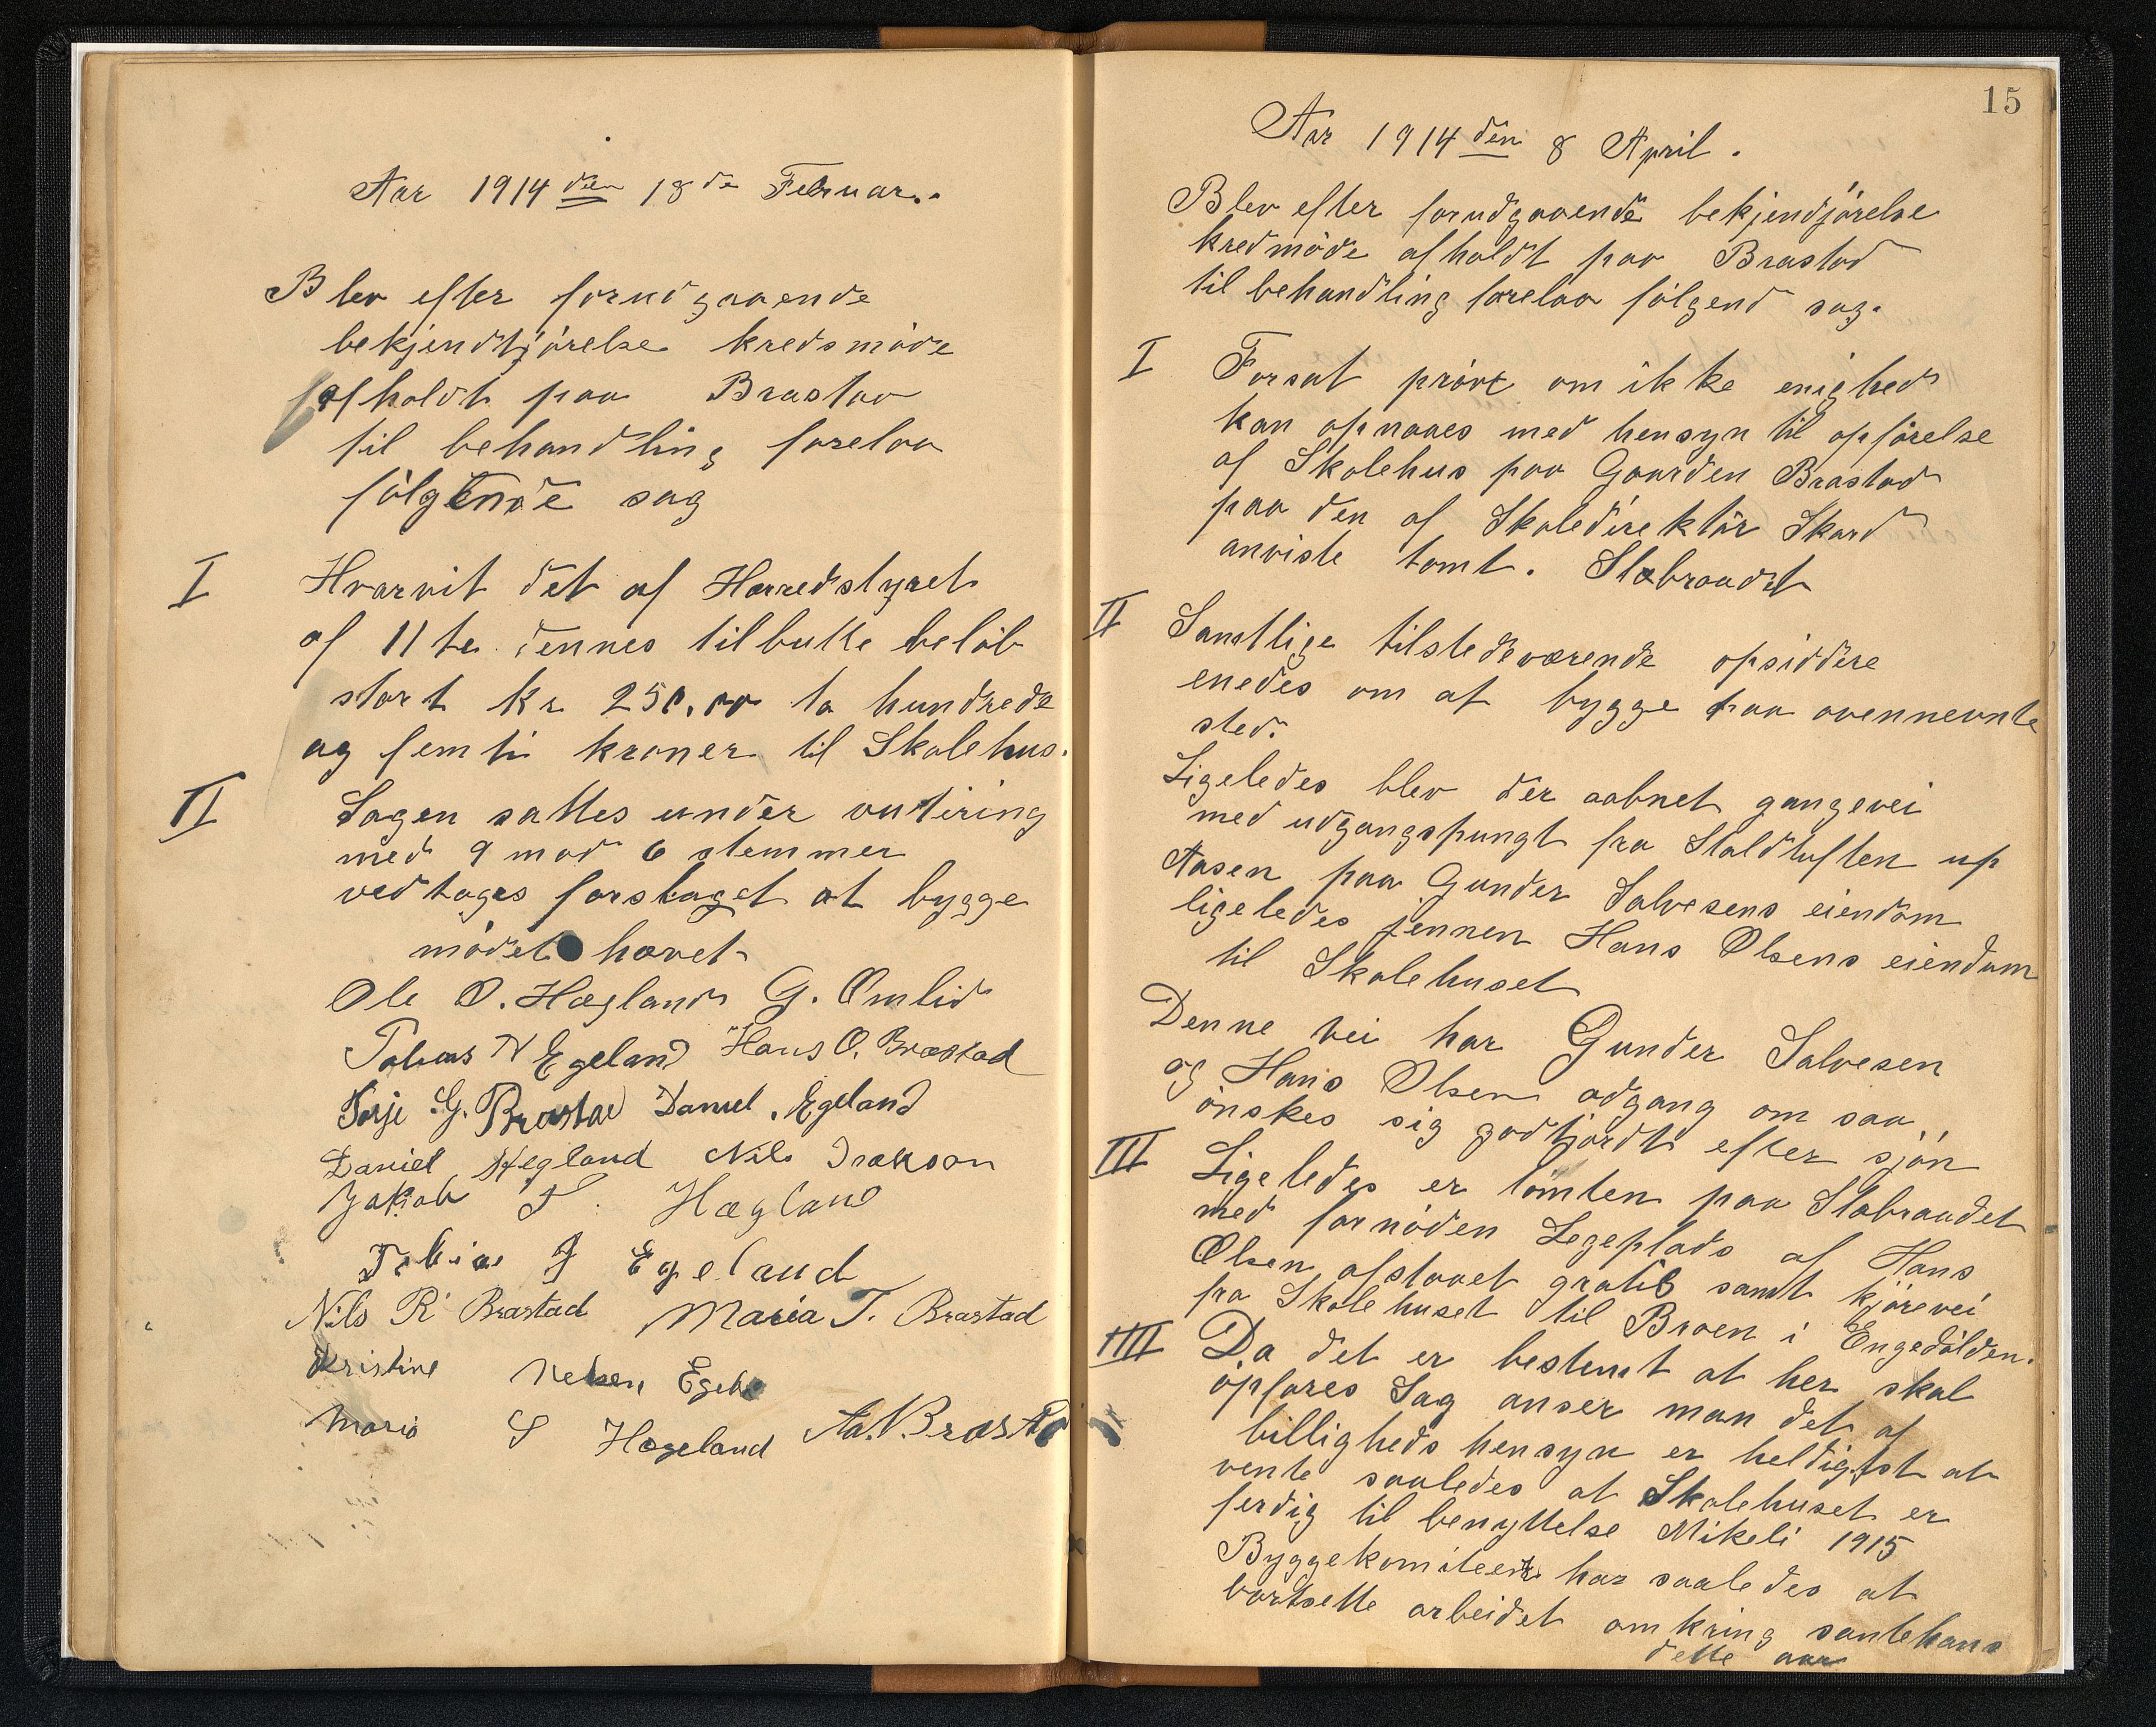 Aar 1914 den 18de Februar.
Blev efter forudgaaende
bekjendtjörelse kredsmöde
afholdt paa Brastad
til behandling forelaa
fölgende sag
I Hvorvit det af Herredstyret
af 11te dennes tilbutte belöb
stort kr 250.00 to hundrede
og femti kroner til Skolehus.
II Sagen sattes under vutiring
med 9 mod 6 stemmer
vedtoges forslaget at bygge
mödet hævet
Ole O. Hægland G. Omlid
Tobias N Egeland Hans O. Brastad
Terje G. Brastad Daniel Egeland
Daniel Hegland Nils Isakson
Jakob T. Hægland
Tobias J Egeland
Nils R Brastad Maria T. Brastad
Kristine Nelsen Egel
Maria S Hægeland Aa. Brasta
15
Aar 1914 den 8 April.
Blev efter forudgaaende bekjendjörelse
kredmöde afholdt paa Brastad
til behandling forelaa fölgend sag.
I Forsat prövt om ikke enighed
kan opnaaes med hensyn til opförelse
af Skolehus paa Gaarden Brastad
paa den af Skoledirektör Skard
anviste tomt. Slabraadet
II Samtlige tilstedeværende opsiddere
enedes om at bygge paa ovennevnte
sted.
Ligeledes blev der aabnet gangevei
med udgangspungt fra Staldtuften up
Aasen paa Gunder Salvesens eiendom
ligeledes jennen Hans Olsens eiendom
til Skolehuset
Denne vei har Gunder Salvesen
og Hans Olsen adgang om saa
önskes sig godtjordt efter sjön
III Ligeledes er tomten paa Slabraadet
med fornöden Legeplads af Hans
Olsen afstaaet gratis samt kjörevei
fra Skolehuset til Broen i Engedölden.
IIII Da det er bestemt at her skal
opföres Sag anser man det af
billigheds hensyn er heldigst at
vente saaledes at Skolehuset er
ferdig til benyttelse Mikeli 1915
Byggekomiteen har saaledes at
bortsette arbeidet omkring santehans
dette aar